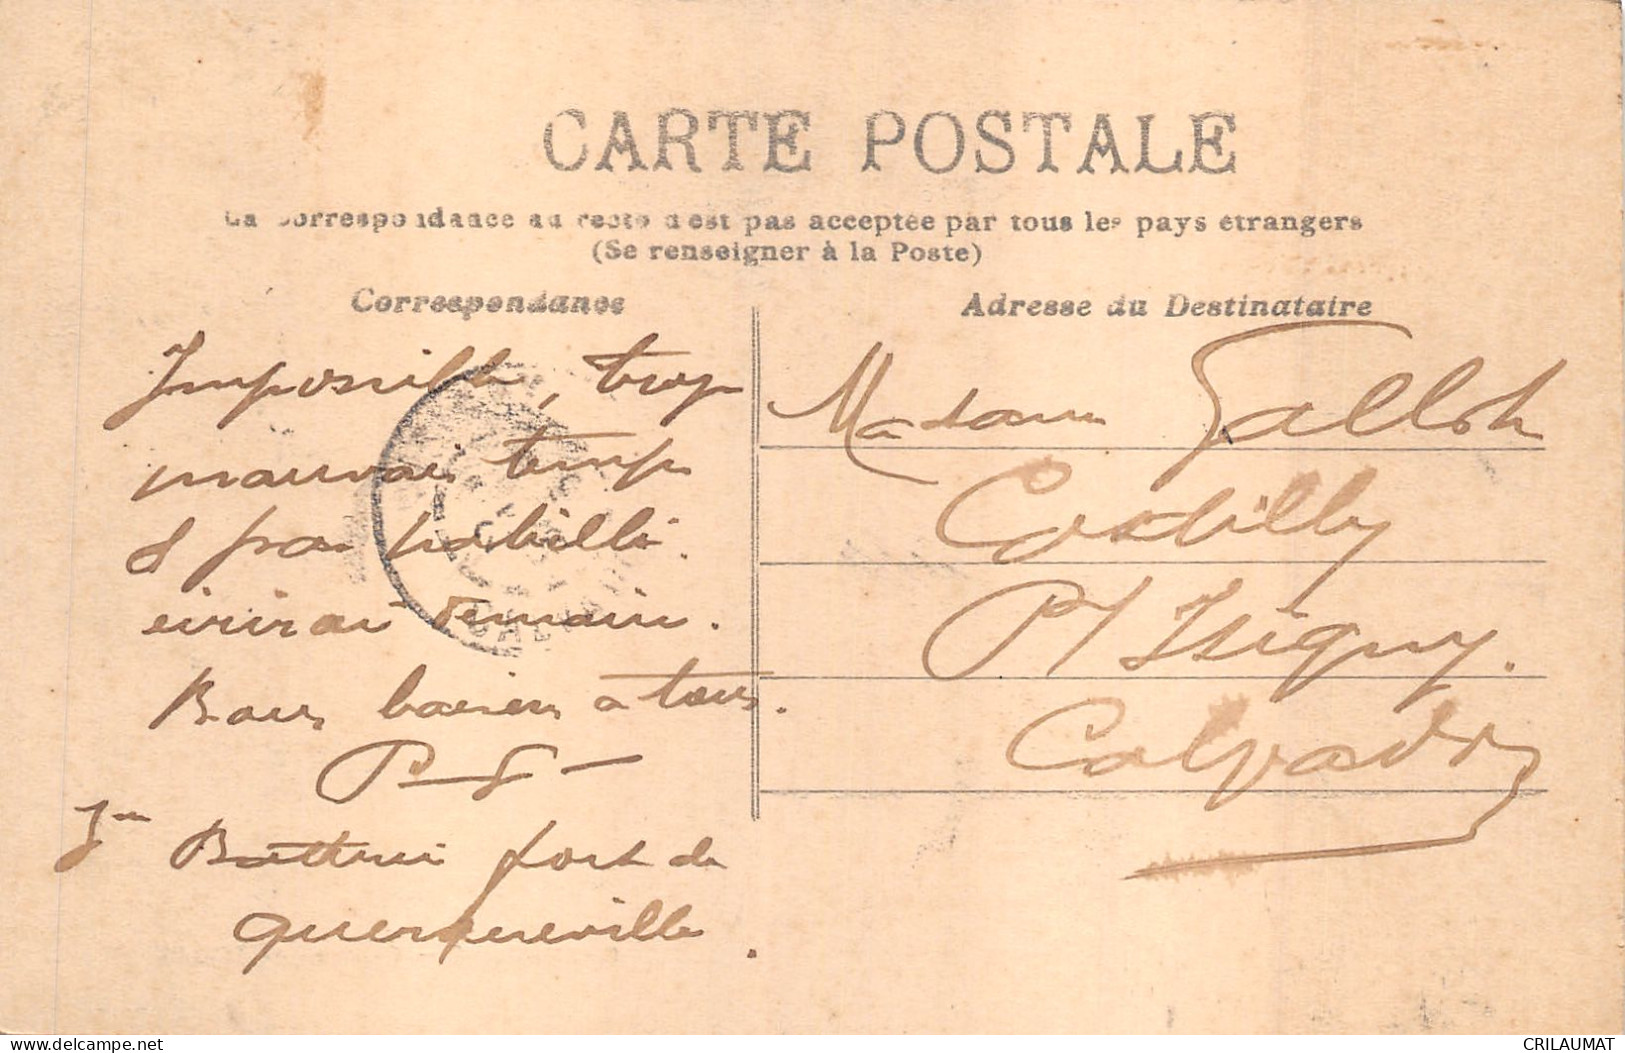 CARTE POSTALE
La Correspondance au recto n'est pas acceptée par tous les pays étrangers
(Se renseigner à la Poste)
Correspondance
Impossible, trop
mauvais temps
& pas habillé.
irai demain.
Bons baisers à tous.
Batterie fort de
querqueville.
Adresse du Destinataire
Madame
Castilly
Pr Isigny.
Calvados
https://www.delcampe.net
CRILAUMAT